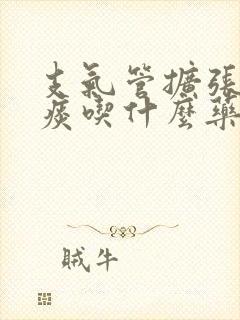 支氣管擴張
痰喫什麼藥
賊牛